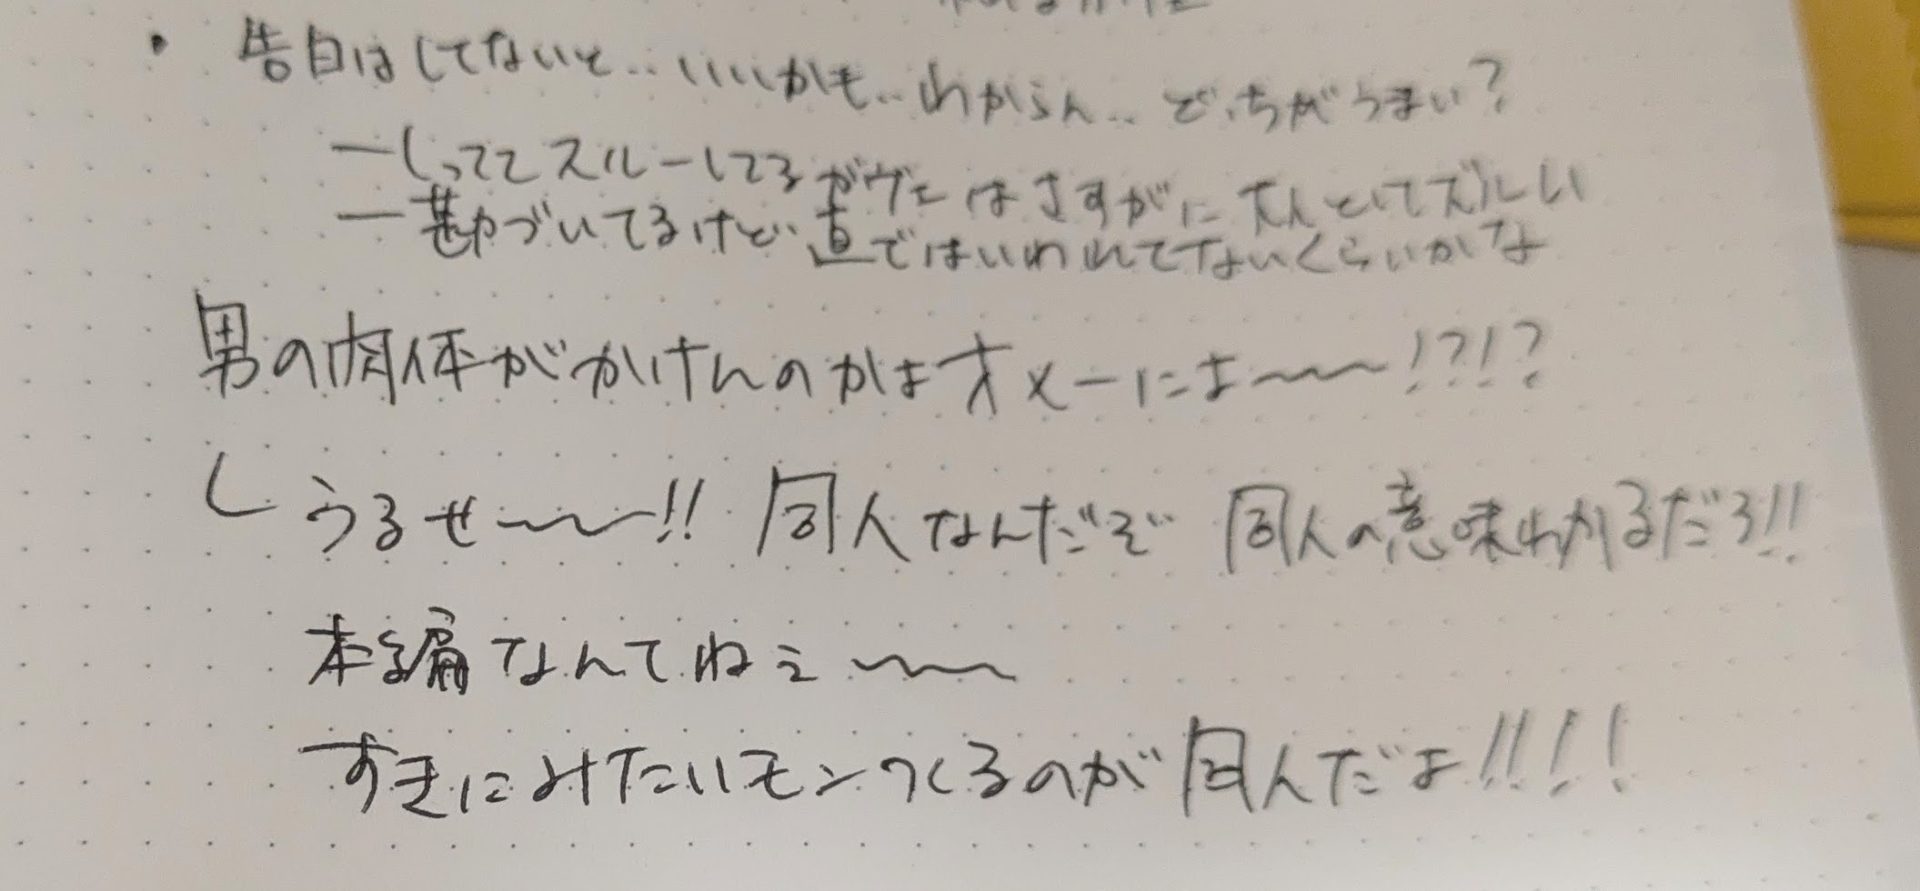 ・告白はしてないと..いいかも..わからん..どっちがうまい?
ー しっててスルーしてるガヴェはさすがに大人としてズルい
ー 勘づいてるけど直ではいわれてないくらいかな
男の肉体がかけんのかよオメーによ〜〜!?!?
し うるせ〜〜!! 同人なんだぞ 同人の意味わかるだろ!!
本編なんてねぇ〜〜
すきにみたいモンつくるのが同人だよ!!!!